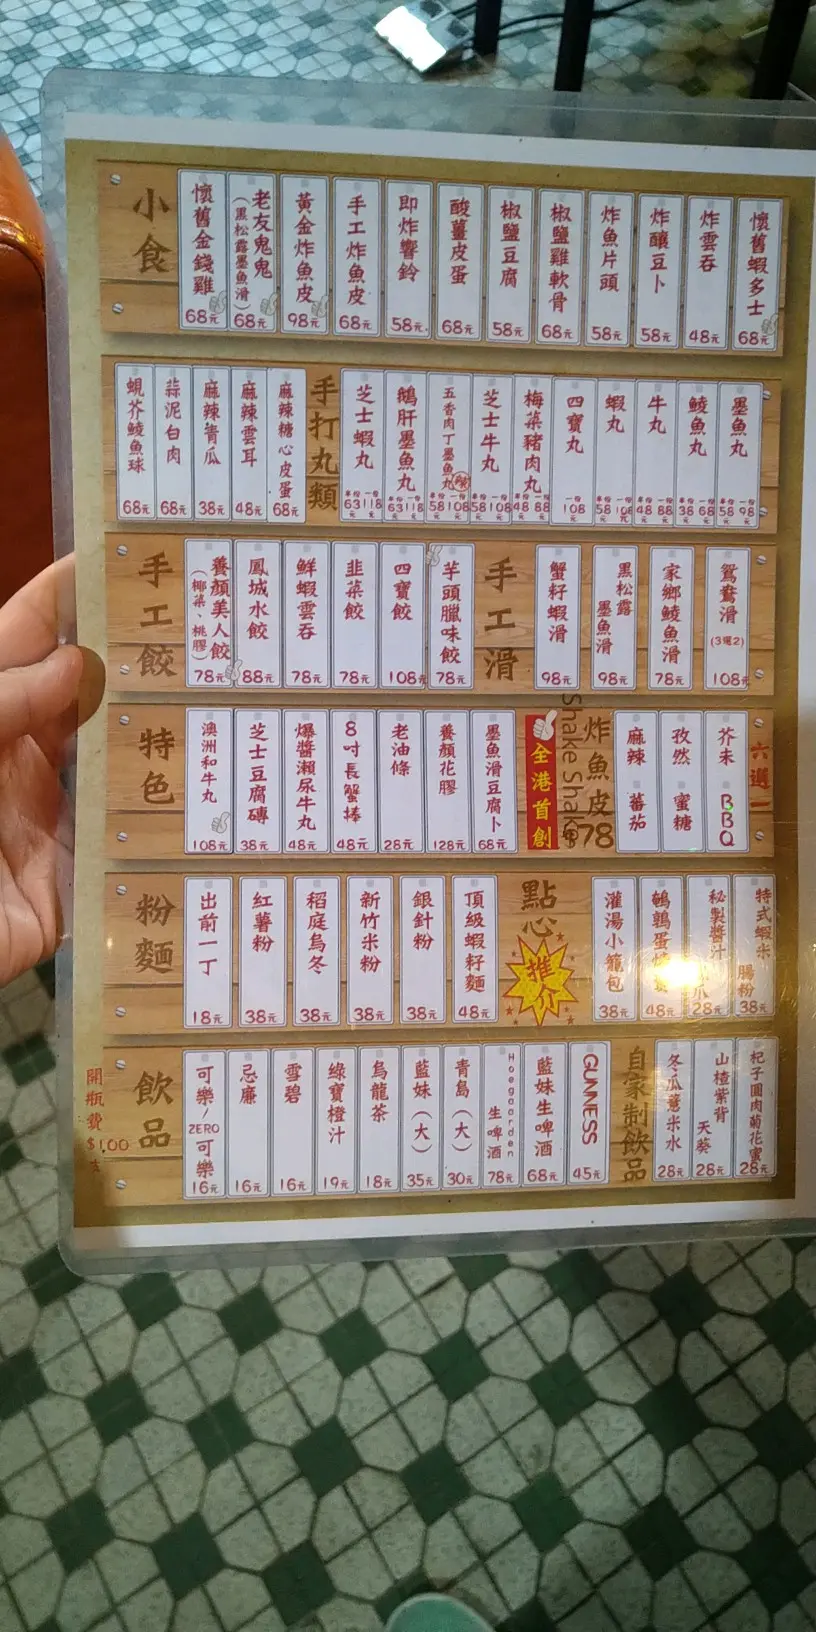 小食
懷舊金錢雞 68元
老友鬼鬼 (黑松露墨魚滑) 68元
黃金炸魚皮 98元
手工炸魚皮 68元
即炸響鈴 58元
酸薑皮蛋 68元
椒鹽豆腐 58元
椒鹽雞軟骨 68元
炸魚片頭 58元
炸釀豆卜 58元
炸雲吞 48元
懷舊蝦多士 68元
蜆芥鯪魚球 68元
蒜泥白肉 68元
麻辣青瓜 38元
麻辣雲耳 48元
麻辣糖心皮蛋 68元
手打丸類
芝士蝦丸 半份 63元 一份 118元
鵝肝墨魚丸 半份 63元 一份 118元
五香肉丁墨魚丸 半份 58元 一份 108元
芝士牛丸 半份 58元 一份 108元
梅菜豬肉丸 半份 48元 一份 88元
四寶丸 一份 108元
蝦丸 半份 58元 一份 108元
牛丸 半份 48元 一份 88元
鯪魚丸 半份 38元 一份 68元
墨魚丸 半份 58元 一份 98元
手工餃
養顏美人餃 (椰菜、桃膠) 78元
鳳城水餃 88元
鮮蝦雲吞 78元
韭菜餃 78元
四寶餃 108元
芋頭臘味餃 78元
手工滑
蟹籽蝦滑 98元
黑松露墨魚滑 98元
家鄉鯪魚滑 78元
鴛鴦滑 (3選2) 108元
特色
澳洲和牛丸 108元
芝士豆腐磚 38元
爆醬瀨尿牛丸 48元
8吋長蟹棒 48元
老油條 28元
養顏花膠 128元
墨魚滑豆腐卜 68元
全港首創
Shake Shake
炸魚皮 $78
麻辣 蕃茄
孜然 蜜糖
芥末 BBQ
六選一
粉麵
出前一丁 18元
紅薯粉 38元
稻庭烏冬 38元
新竹米粉 38元
銀針粉 38元
頂級蝦籽麵 48元
點心
推介
灌湯小籠包 38元
鵪鶉蛋燒賣 48元
秘製醬汁 爪 28元
特式蝦米腸粉 38元
飲品
可樂/ZERO可樂 16元
忌廉 16元
雪碧 16元
綠寶橙汁 19元
烏龍茶 18元
藍妹(大) 35元
青島(大) 30元
Hoegaarden 生啤酒 78元
藍妹生啤酒 68元
GUINNESS 45元
自家制飲品
冬瓜薏米水 28元
山楂紫背天葵 28元
杞子圓肉菊花蜜 28元
開瓶費 $100